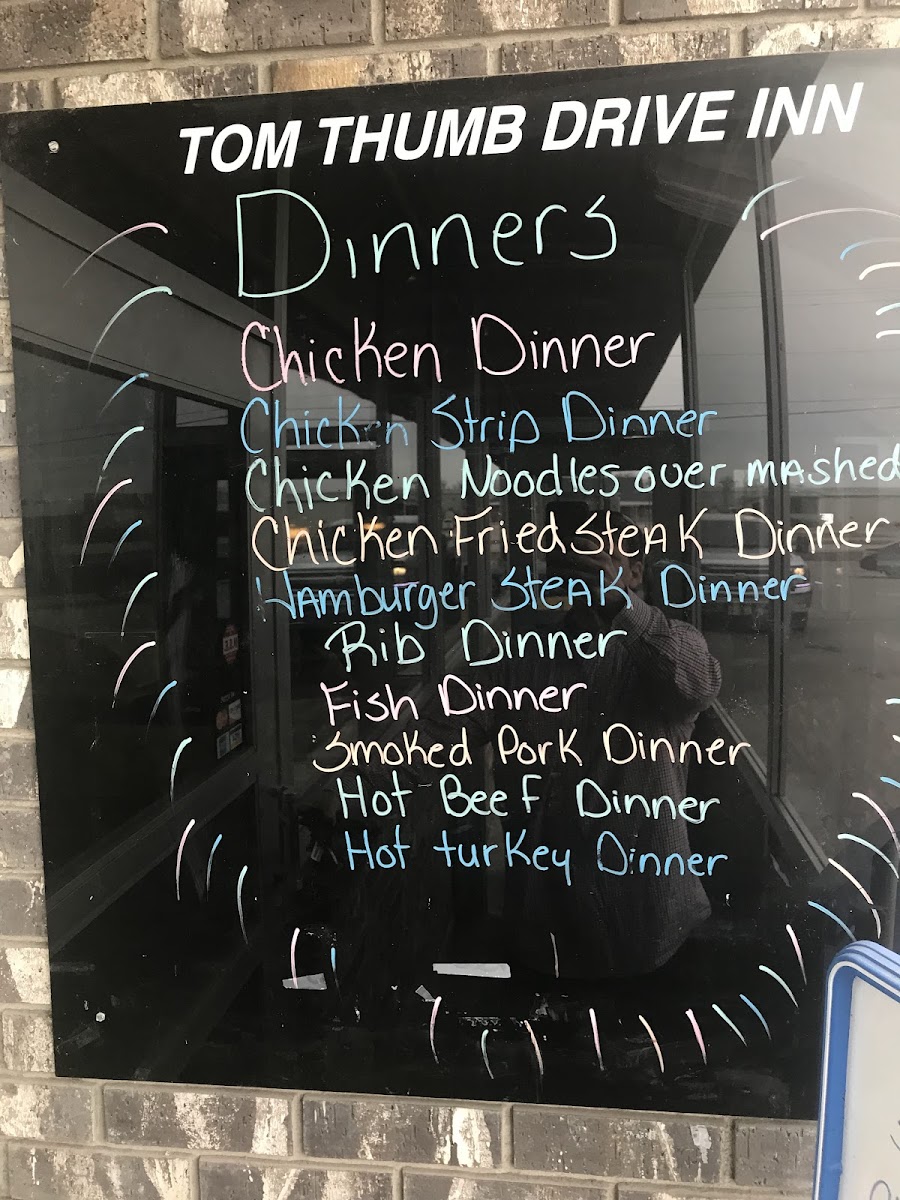 TOM THUMB DRIVE INN
Dinners
Chicken Dinner
Chicken Strip Dinner
Chicken Noodles over mashed
Chicken Fried Steak Dinner
Hamburger Steak Dinner
Rib Dinner
Fish Dinner
Smoked Pork Dinner
Hot Beef Dinner
Hot turkey Dinner